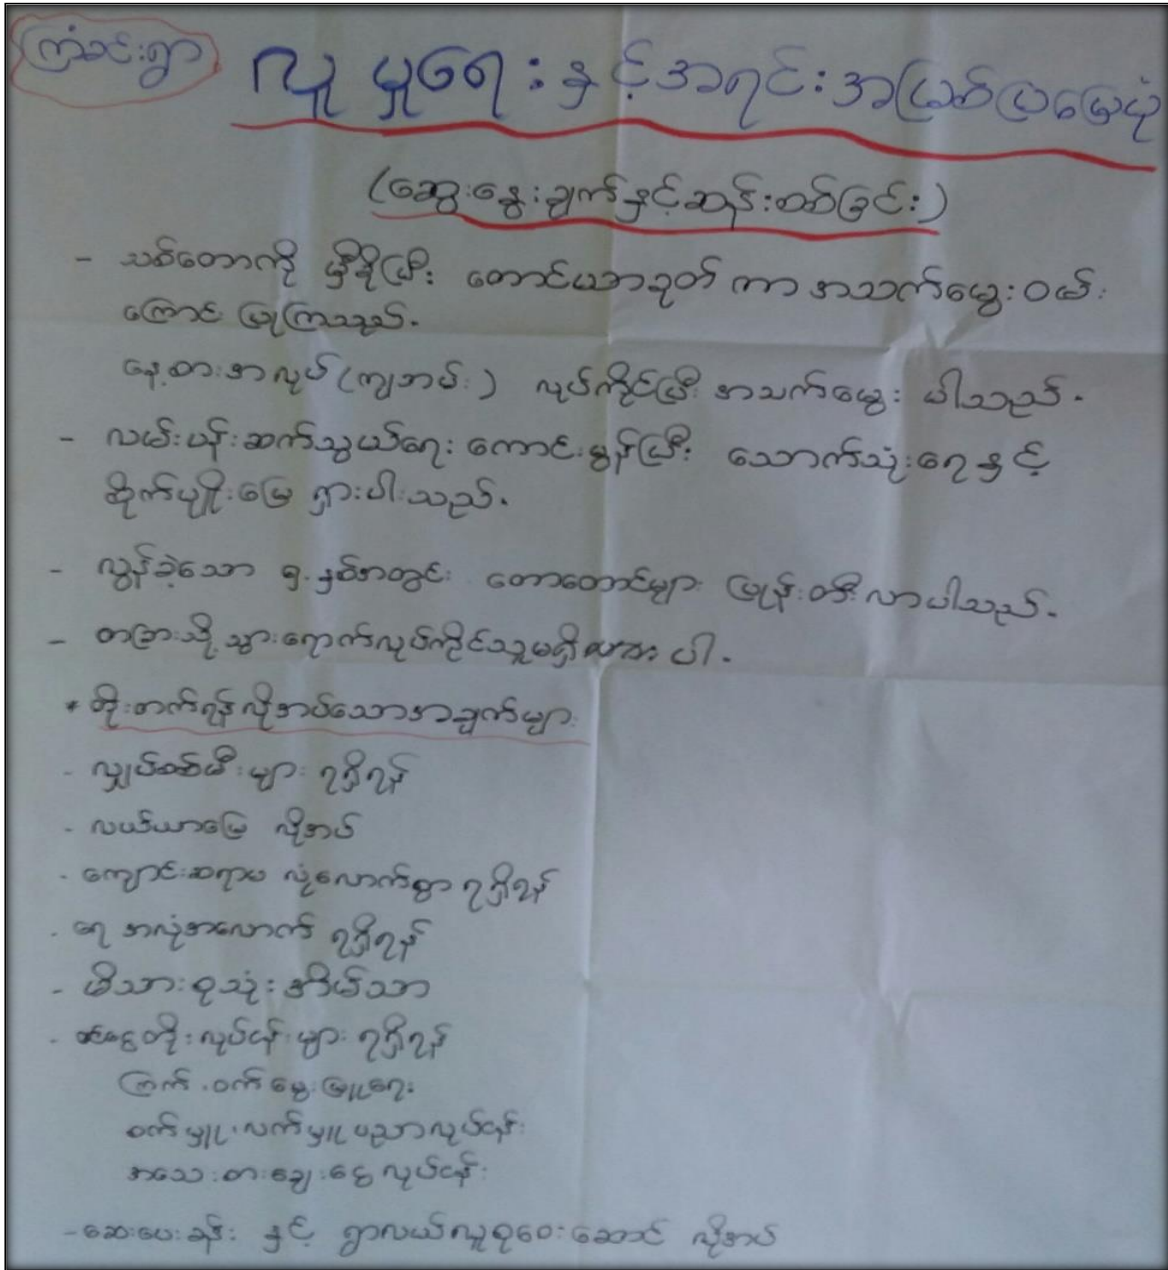 ကြံခင်းရွာ
လူမှုရေးနှင့်အရင်းအမြစ်ပြမြေပုံ
(ဆွေးနွေးချက်နှင့်ဆန်းစစ်ခြင်း)
- သစ်တောကို မှီခိုပြီး တောင်ယာခုတ် ကာ အသက်မွေးဝမ်း
ကြောင်း ပြုကြသည်.
နေ့စားအလုပ် (ကျဘမ်း) လုပ်ကိုင်ပြီး အသက်မွေး ပါသည်.
- လမ်းပန်းဆက်သွယ်ရေး ကောင်းမွန်ပြီး သောက်သုံးရေနှင့်
စိုက်ပျိုးမြေ ရှားပါးသည်.
- လွန်ခဲ့သော ၅.နှစ်အတွင်း တောတောင်များ ပြုန်းတီးလာပါသည်.
- တခြားသို့ သွားရောက်လုပ်ကိုင်သူမရှိ ပါ.
* တိုးတက်ရန်လိုအပ်သောအချက်များ
- လျှပ်စစ်မီးများ ရရှိရန်
- လယ်ယာမြေ လိုအပ်
- ကျောင်းဆရာမ လုံလောက်စွာ ရရှိရန်
- ရေ အလုံအလောက် ရရှိရန်
- မိသားစုသုံး အိမ်သာ
- ဝင်ငွေတိုးလုပ်ငန်းများ ရရှိရန်
ကြက်.ဝက်မွေးမြူရေး
စက်မှု.လက်မှုပညာလုပ်ငန်း
အသေးစားချေးငွေလုပ်ငန်း
- ဆေးပေးခန်း နှင့် ရွာလယ်လူစုဝေးဆောင် လိုအပ်